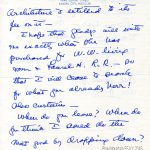 Architecture is entitled to its
fee on it —
I hope that Gladys will write
me exactly when the was
purchased for W.W. living
room & Laurel H. R. R. — so
that I will know to provide
for what you already have!
Also curtains —
When do you leave? When do
you think I should do the
most good by dropping down?